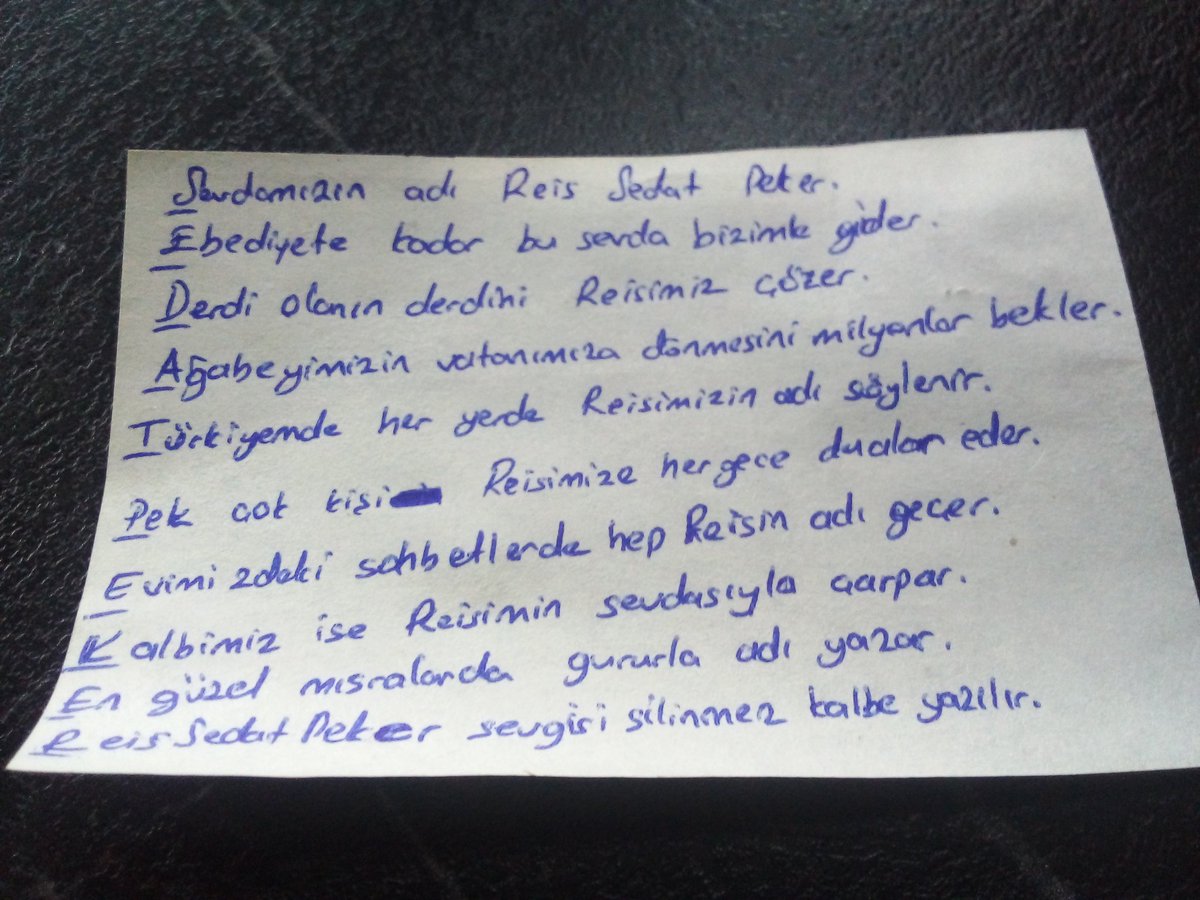 Sevdamızın adı Reis Sedat Peker.
Ebediyete kadar bu sevda bizimle gider.
Derdi olanın derdini Reisimiz çözer.
Ağabeyimizin vatanımıza dönmesini milyonlar bekler.
Türkiyemde her yerde Reisimizin adı söylenir.
Pek çok kişi Reisimize her gece dualar eder.
Evimizdeki sohbetlerde hep Reisin adı geçer.
Kalbimiz ise Reisimin sevdasıyla çarpar.
En güzel mısralarda gururla adı yazar.
Reis Sedat Peker sevgisi silinmez kalbe yazılır.